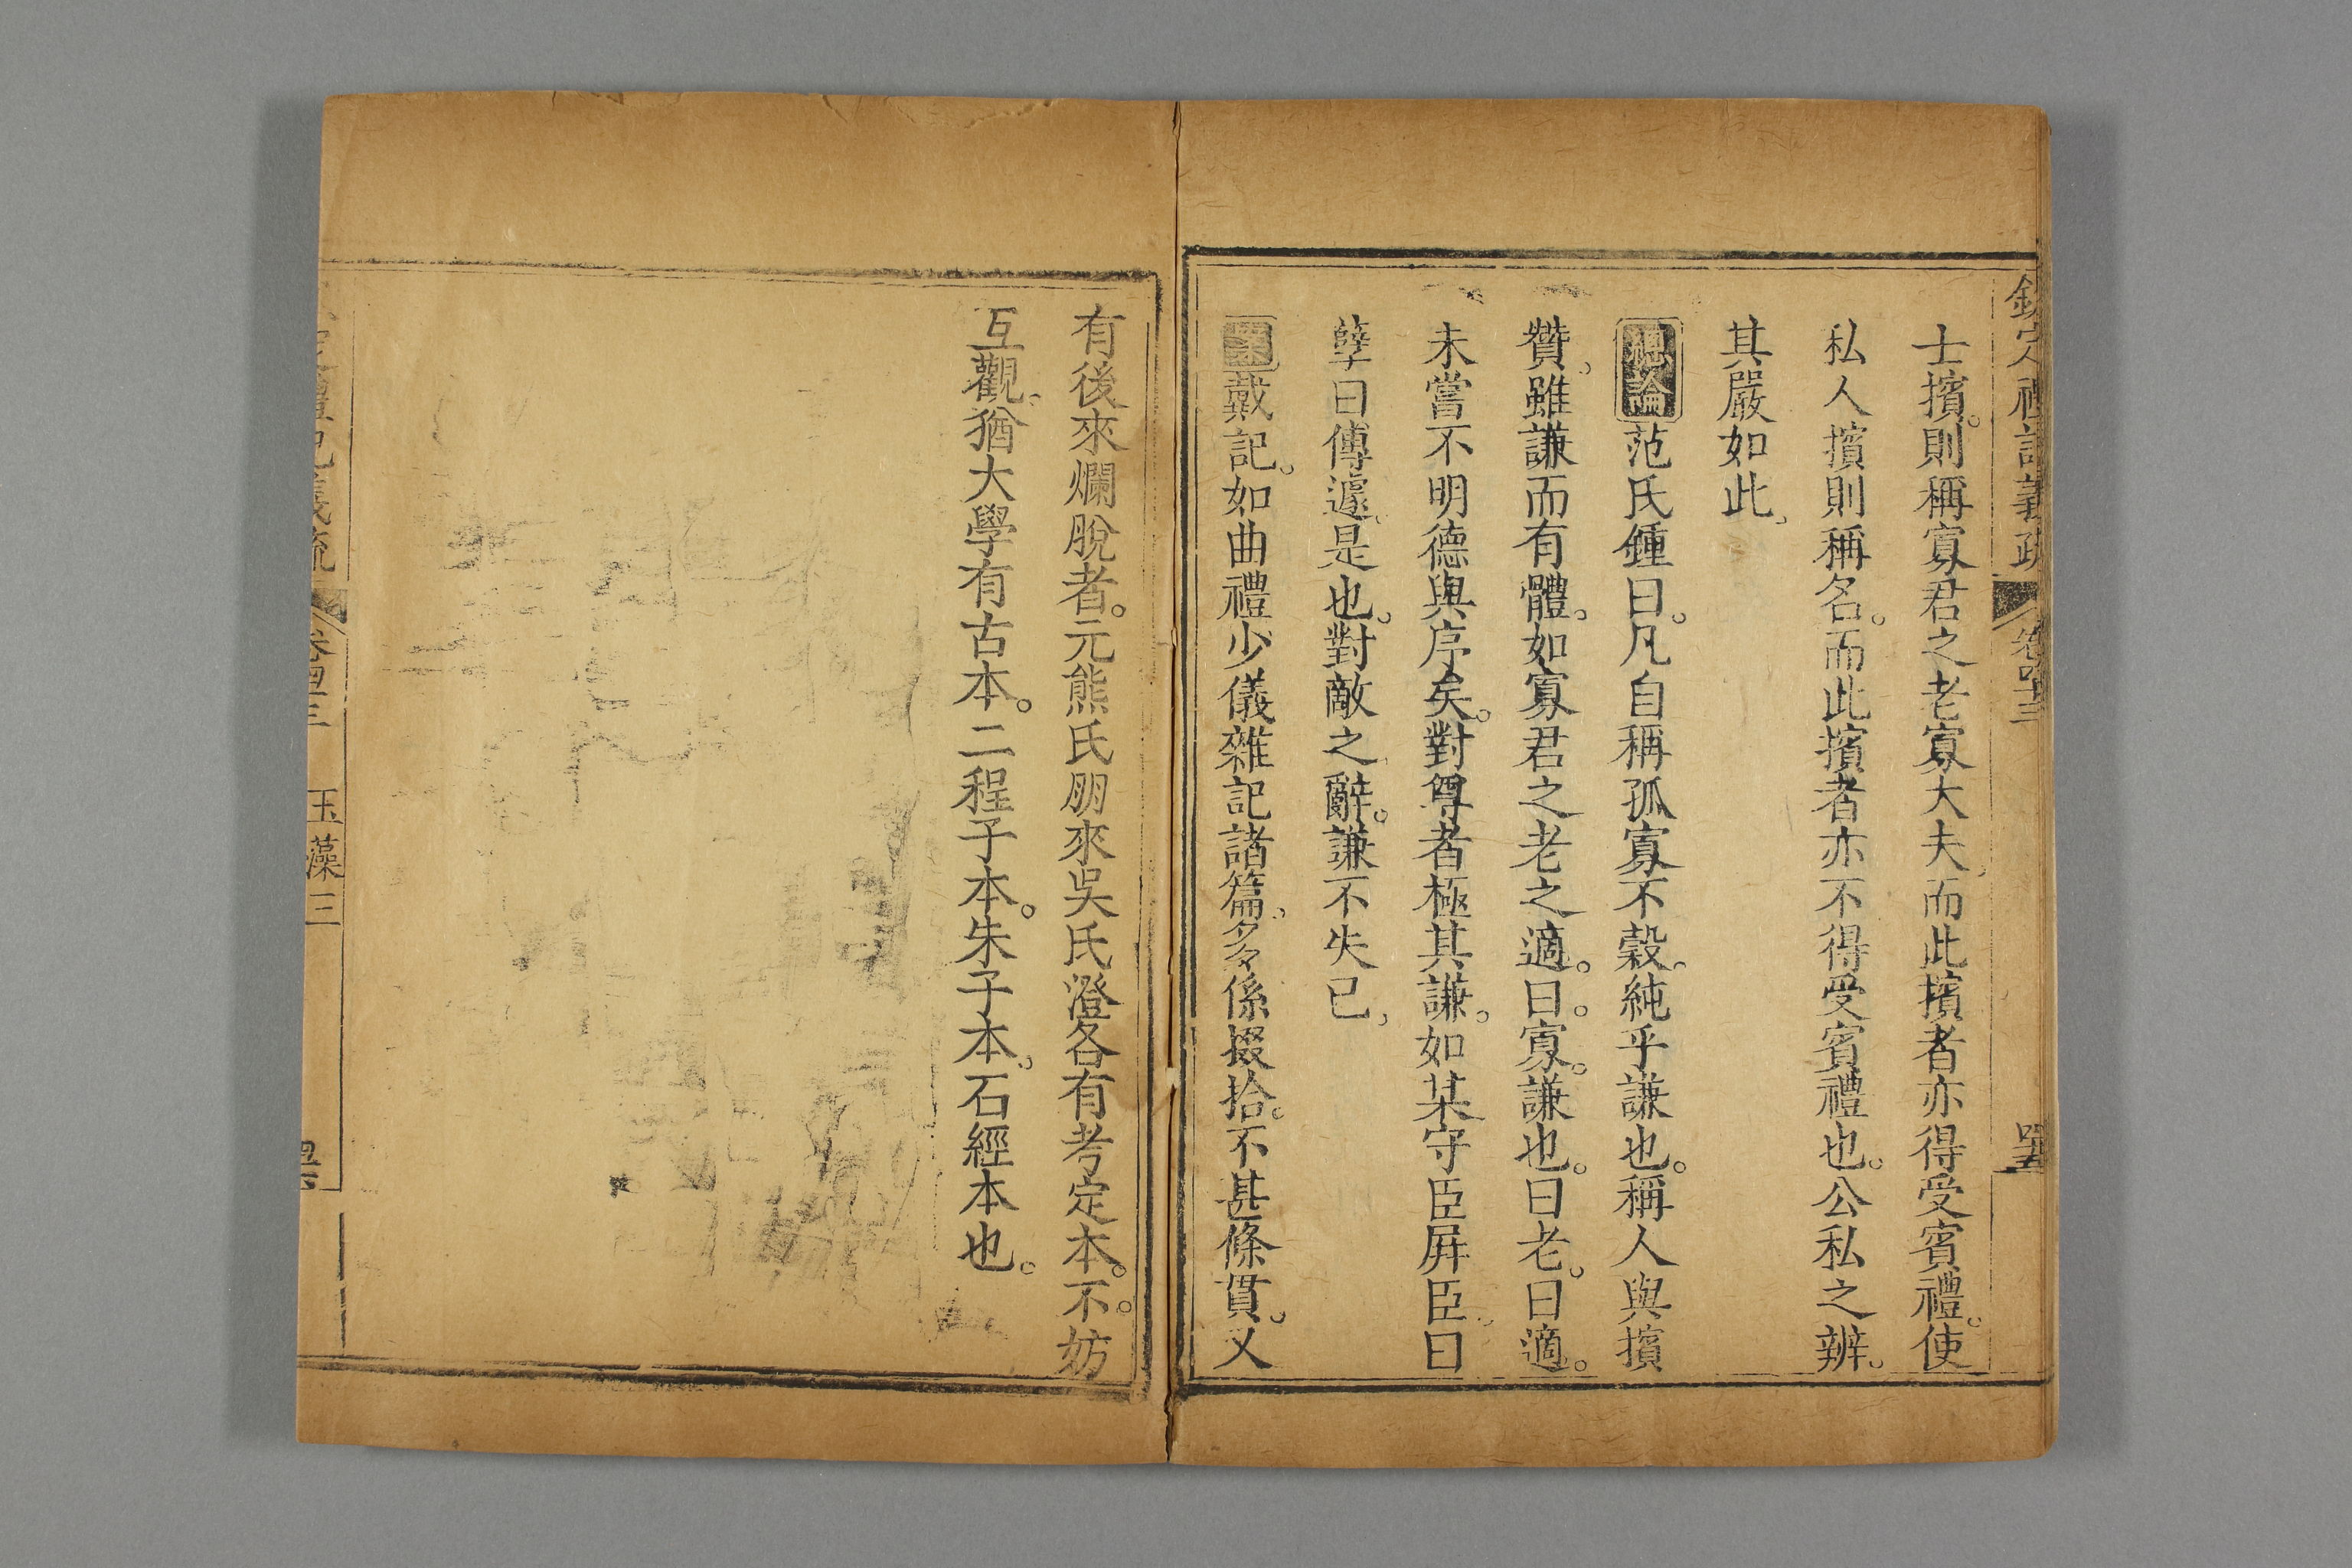 欽定禮記義疏 卷四十三 四十五
士擯。則稱寡君之老寡大夫、而此擯者亦得受賓禮。使
私人擯則稱名。而此擯者亦不得受賓禮也。公私之辨。
其嚴如此、
總論范氏鍾曰。凡自稱孤寡不穀。純乎謙也。稱人與擯
贊、雖謙而有體。如寡君之老之適。曰。寡。謙也。曰老。曰適。
未嘗不明德與序矣。對尊者極其謙。如某守臣某屏臣、曰
孽曰傳遽、是也。對敵之辭。謙不失已、
案戴記。如曲禮少儀雜記諸篇、多係掇拾。不甚條貫。又
有後來爛脫者。元熊氏朋來吳氏澄各有考定本。不。妨
互觀、猶大學有古本。二程子本。朱子本、石經本也。
定禮記義疏 卷四十三 玉藻三